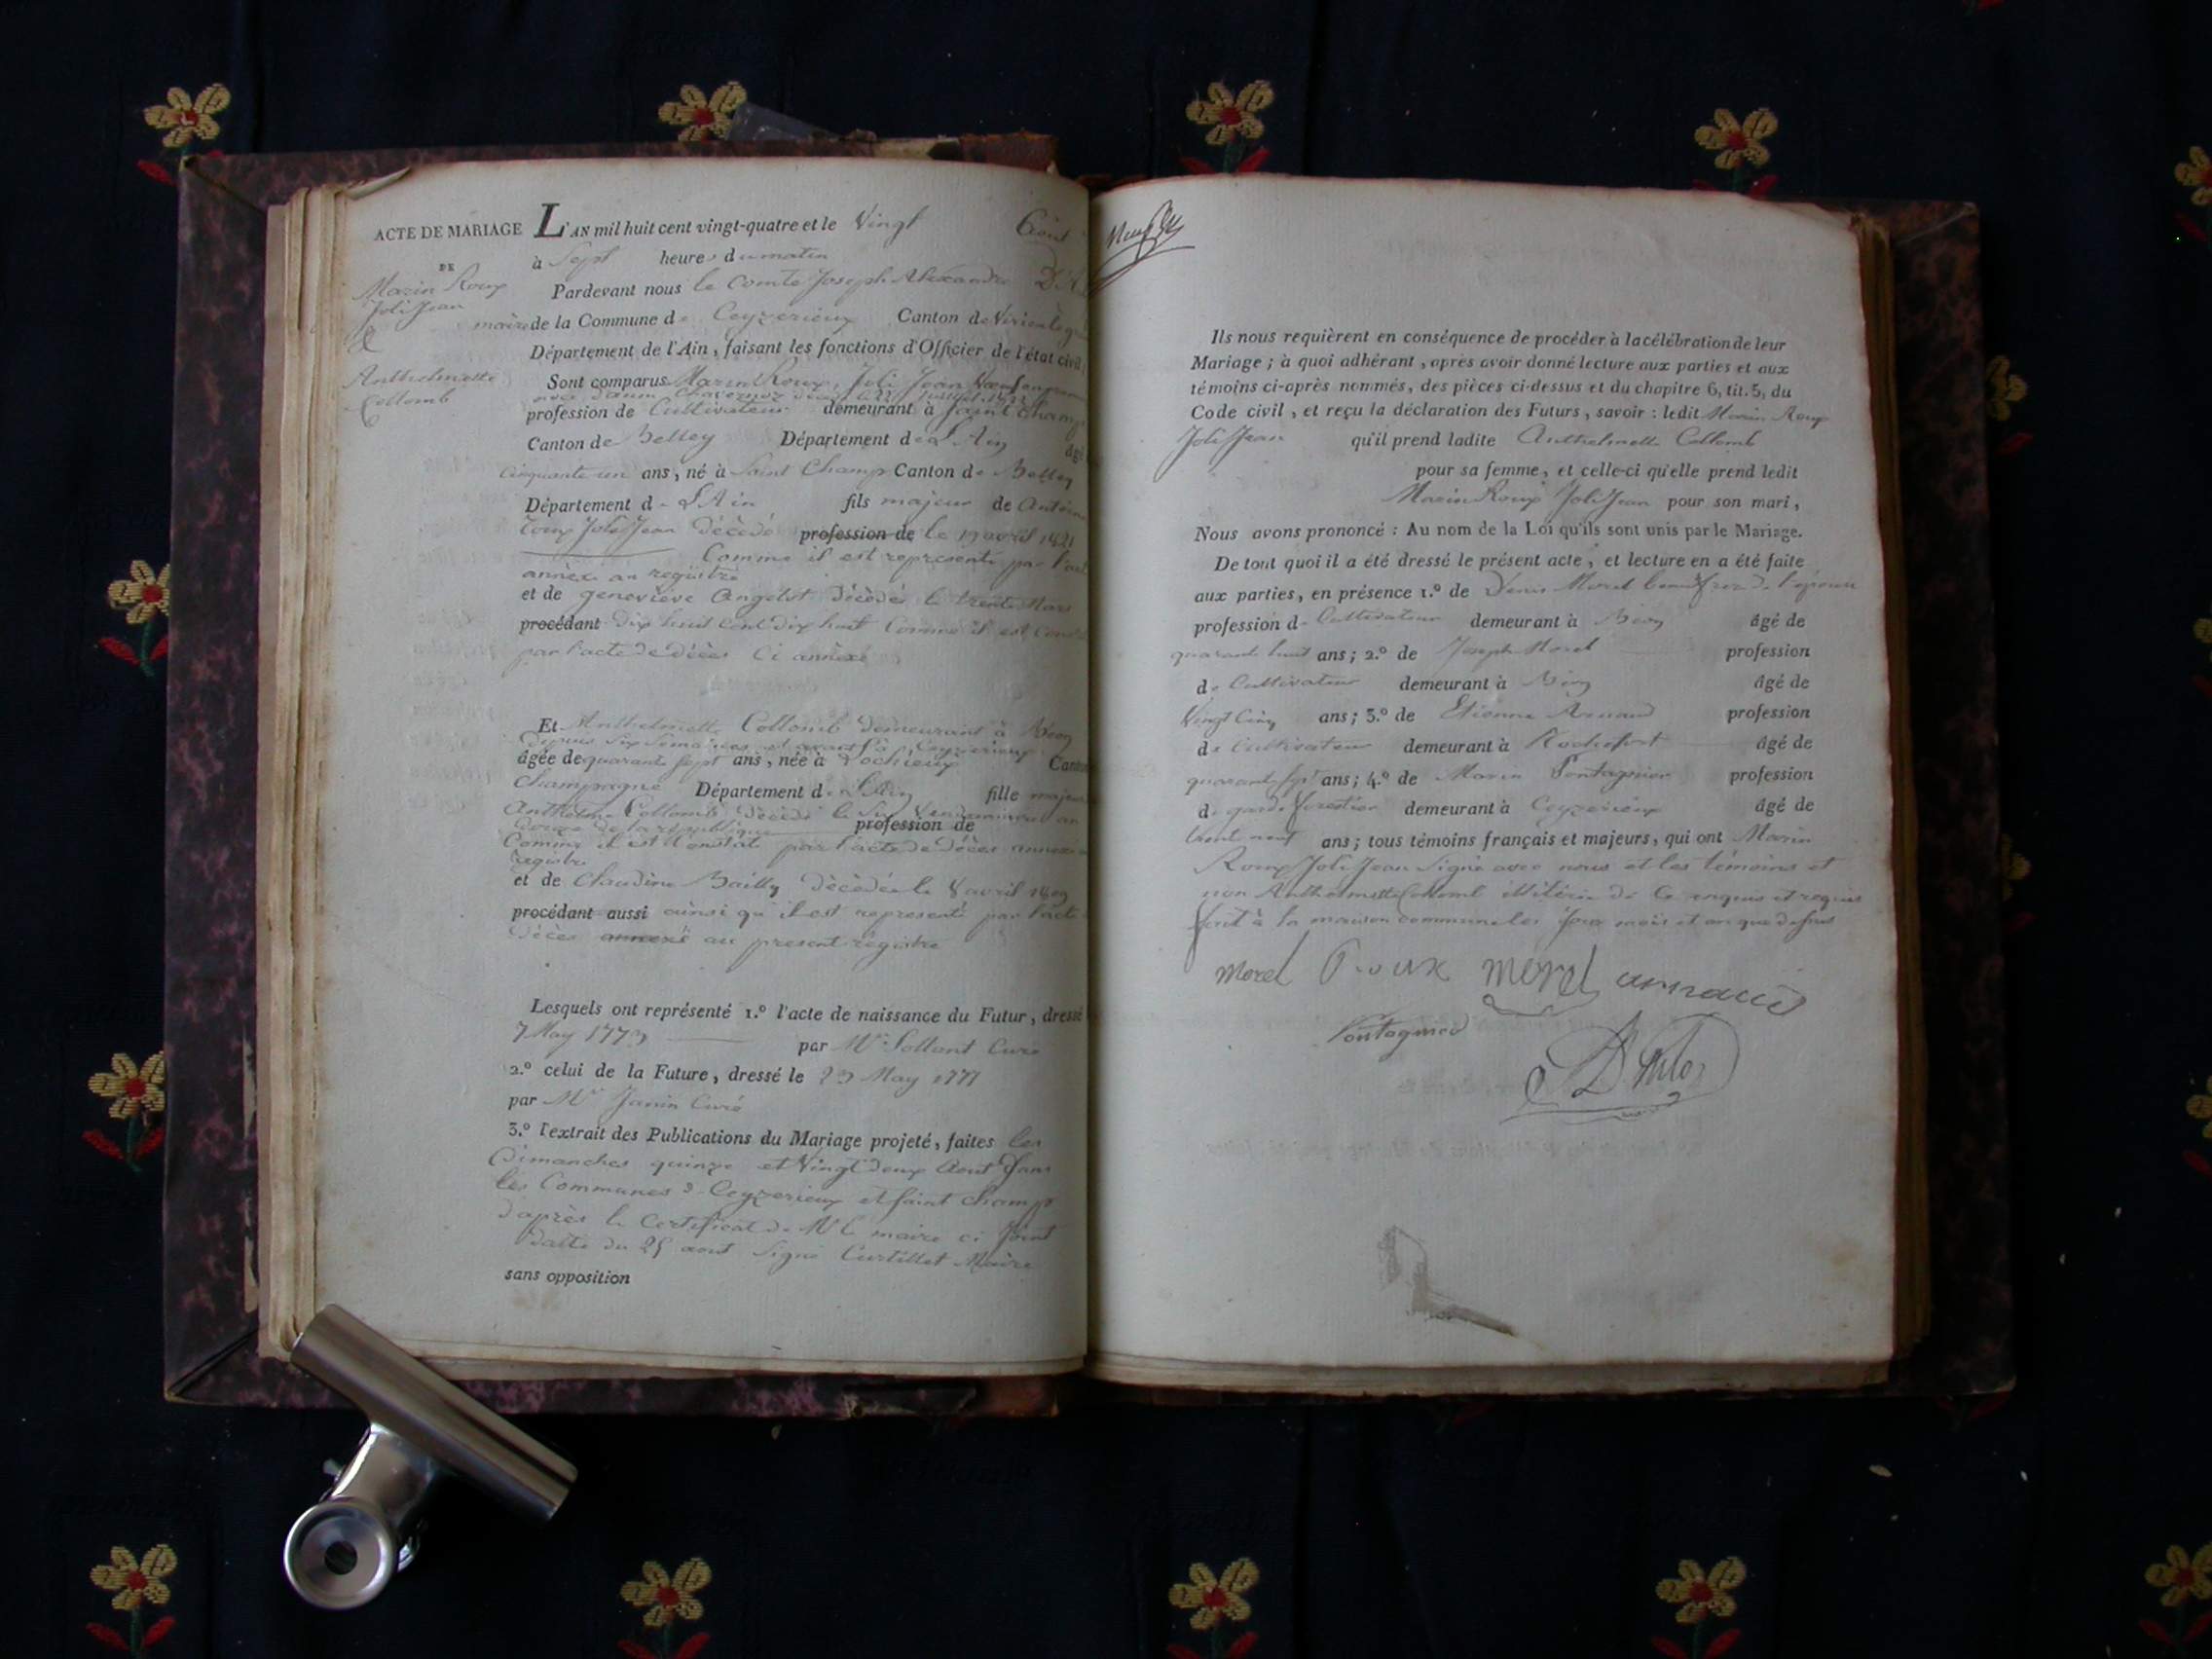 ACTE DE MARIAGE
DE
Marin Roux
Joli Jean
&
Anthelmette
Collomb
L'AN mil huit cent vingt-quatre et le Vingt Août
à Sept heures du matin
Pardevant nous le Comte Joseph Alexandre
maire de la Commune de Ceyzerieux Canton de
Département de l'Ain, faisant les fonctions d'Officier de l'état civil
Sont comparus Marin Roux, Joli Jean Veuf en
profession de Cultivateur demeurant à Saint Champ
Canton de Belley Département de L'Ain âgé
Cinquante un ans, né à Saint Champ Canton de Belley
Département de L'Ain fils majeur de Antoine
Roux Joli Jean décédé profession de le avril
Comme il est représenté par l'acte
annexé au registre
et de geneviève Angelot décédée le trente Mars
procédant dix huit Cent dix huit Comme il est
par l'acte de décès Ci annexé
Et Anthelmette Collomb demeurant à Béon
depuis Six Semaines et avant à Ceyzerieux
âgée de quarante Sept ans, née à Lochieux Canton
Champagne Département de L'Ain fille majeure
Anthelme Collomb décédé le Six Vendemiaire an
douze de la république profession de
Comme il est Constaté par l'acte de décès annexé
registre
et de Claudine Bailly décédée le 8 avril 1809
procédant aussi ainsi qu'il est représenté par l'acte
décès annexé au present régistre
Lesquels ont représenté 1.º l'acte de naissance du Futur, dressé
7 May 1773 par Mr Sollant Curé
2.º celui de la Future, dressé le 23 May 1777
par Mr Janin Curé
3.º l'extrait des Publications du Mariage projeté, faites les
Dimanches quinze et Vingt deux Aout dans
les Communes de Ceyzerieux et Saint Champ
d'après le Certificat de Mr le maire ci Joint
datté du 25 aout Signé Curtillet Maire
sans opposition
Ils nous requièrent en conséquence de procéder à la célébration de leur
Mariage; à quoi adhérant, après avoir donné lecture aux parties et aux
témoins ci-après nommés, des pièces ci-dessus et du chapitre 6, tit. 5, du
Code civil, et reçu la déclaration des Futurs, savoir : ledit Marin Roux
Joli Jean qu'il prend ladite Anthelmette Collomb
pour sa femme, et celle-ci qu'elle prend ledit
Marin Roux Joli Jean pour son mari,
Nous avons prononcé : Au nom de la Loi qu'ils sont unis par le Mariage.
De tout quoi il a été dressé le présent acte, et lecture en a été faite
aux parties, en présence 1.º de Denis Morel beaufrere de l'épouse
profession de Cultivateur demeurant à Béon âgé de
quarante huit ans; 2.º de Joseph Morel profession
de Cultivateur demeurant à Béon âgé de
Vingt Cinq ans; 3.º de Etienne Arnaud profession
de Cultivateur demeurant à Rochefort âgé de
quarante sept ans; 4.º de Marin Pontagnier profession
de garde forestier demeurant à Ceyzerieux âgé de
trente neuf ans; tous témoins français et majeurs, qui ont Marin
Roux Joli Jean Signé avec nous et les témoins et
non Anthelmette Collomb illitérée de Ce enquis et requis
fait à la maison commune les jour mois et an que dessus
Morel Roux Morel